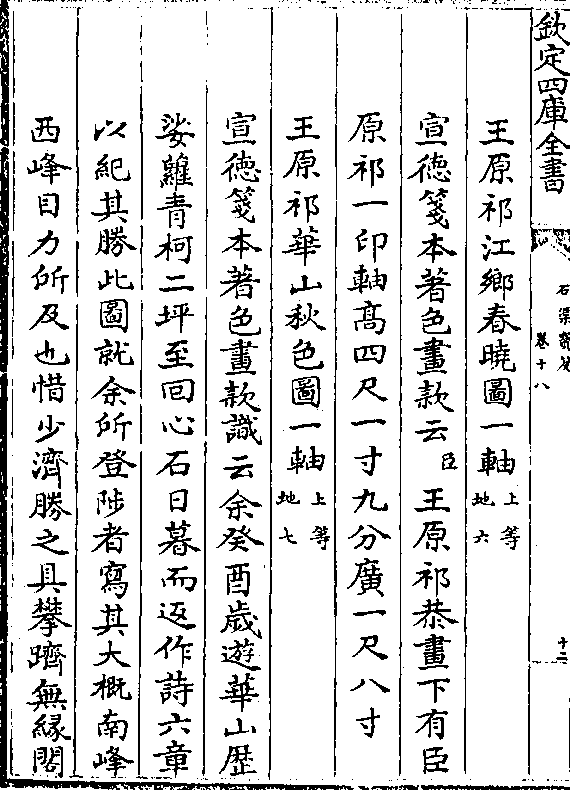 欽定四庫全書
石渠寶笈
卷十八
十二
王原祁江鄉春曉圖一軸上等地六
宣德箋本著色畫款云臣王原祁恭畫下有臣
原祁一印軸高四尺一寸九分廣一尺八寸
王原祁華山秋色圖一軸上等地七
宣德箋本著色畫款識云余癸酉歲遊華山歴
娑蘿青柯二坪至回心石日暮而返作詩六章
以紀其勝此圖就余所登陟者寫其大概南峰
西峰目力所及也惜少濟勝之具攀躋無緣閣